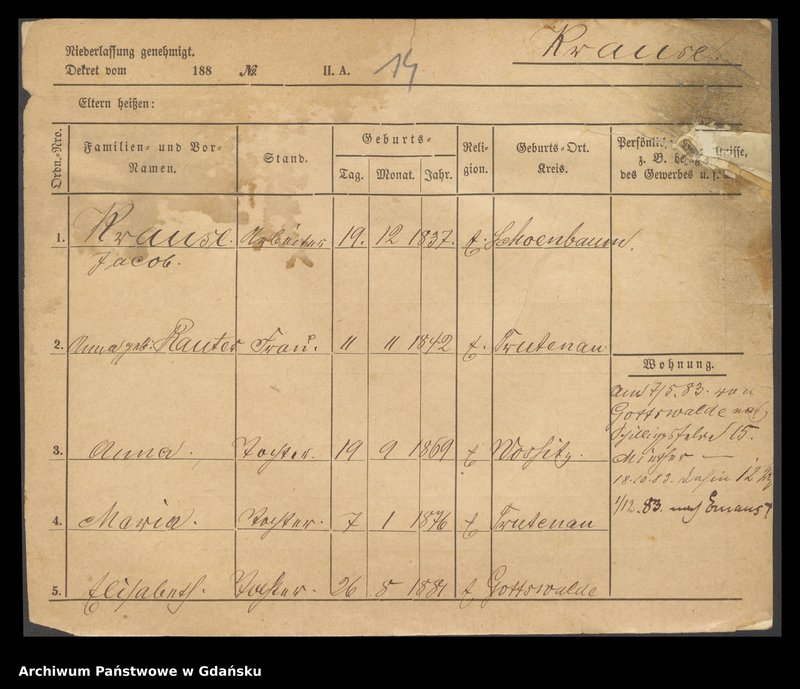 Krause.
Niederlassung genehmigt.
Dekret vom 188 № II. A. 14
Eltern heißen:
Ordn.-Nro.
Familien- und Vor-Namen.
Stand.
Geburts-
Tag. Monat. Jahr.
Reli-gion.
Geburts-Ort.
Kreis.
Persönl
z. B. be
des Gewerbes u.
1. Krause. Arbeiter 19. 12 1837. f. Schoenbaum.
Jacob.
2. Anna geb. Rauter Frau. 11 11 1842 f. Trutenau
Wohnung.
Am 7/5. 83. von
Gottswalde nach
Schillingsfelde 15.
3. Anna. Tochter. 19 9 1869 f Wossitz.
18.10.83. dahin 12
1/12. 83. nach Emaus 7
4. Maria. Tochter. 7 1 1876 f Trutenau
5. Elisabeth. Tochter. 26 8 1881 f Gottswalde
Archiwum Państwowe w Gdańsku